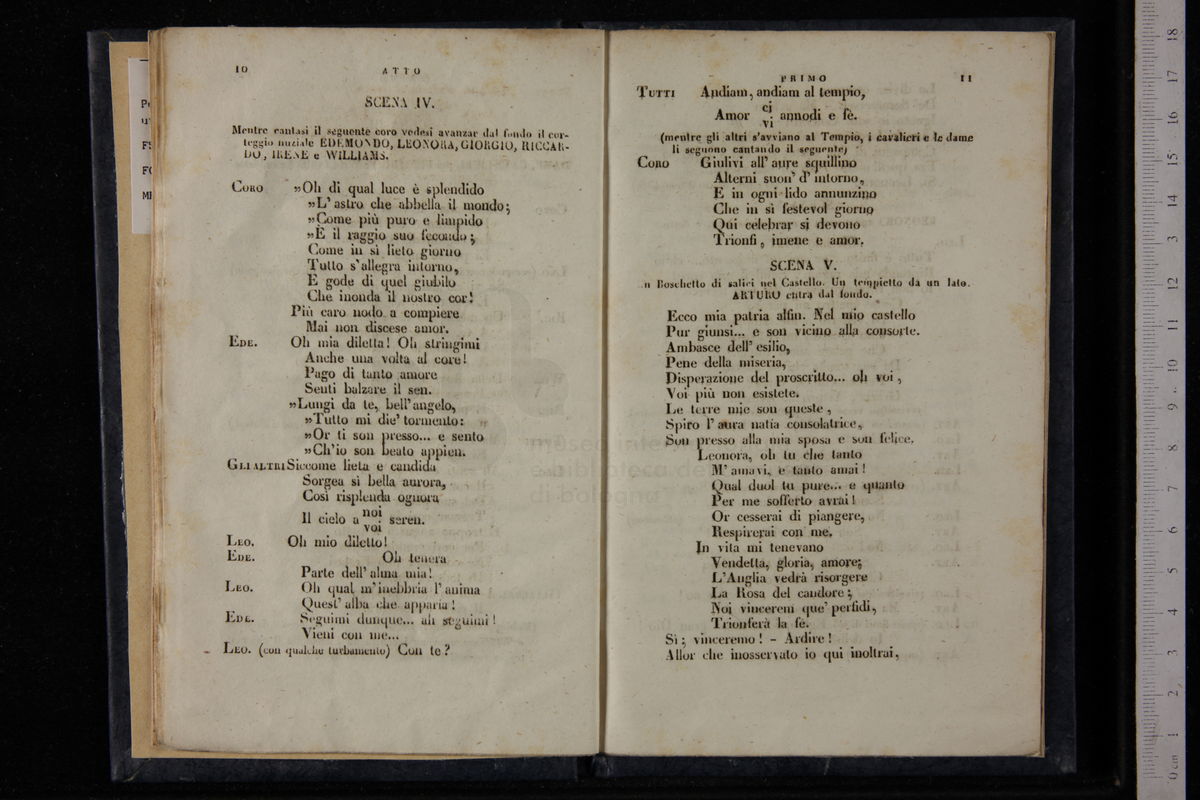 10
ATTO
SCENA IV.
Mentre cantasi il seguente coro vedesi avanzar dal fondo il cor-
teggio nuziale EDEMONDO, LEONORA, GIORGIO, RICCAR-
DO, IRENE e WILLIAMS.
CORO »Oh di qual luce è splendido
»L' astro che abbella il mondo;
»Come più puro e limpido
»È il raggio suo fecondo;
Come in sì lieto giorno
Tutto s'allegra intorno,
E gode di quel giubilo
Che inonda il nostro cor!
Più caro nodo a compiere
Mai non discese amor.
EDE. Oh mia diletta! Oh stringimi
Anche una volta al core!
Pago di tanto amore
Senti balzare il sen.
»Lungi da te, bell'angelo,
»Tutto mi die' tormento:
»Or ti son presso... e sento
»Ch'io son beato appien.
GLI ALTRI Siccome lieta e candida
Sorgea sì bella aurora,
Così risplenda ognora
Il cielo a noi seren.
voi
LEO. Oh mio diletto!
EDE. Oh tenera
Parte dell' alma mia!
LEO. Oh qual m'inebbria l'anima
Quest' alba che apparia!
EDE. Seguimi dunque... ah seguimi!
Vieni con me...
LEO. (con qualche turbamento) Con te?
PRIMO
11
TUTTI Andiam, andiam al tempio,
Amor ci annodi e fè.
vi
(mentre gli altri s'avviano al Tempio, i cavalieri e le dame
li seguono cantando il seguente)
CORO Giulivi all' aure squillino
Alterni suon' d' intorno,
E in ogni lido annunzino
Che in sì festevol giorno
Qui celebrar si devono
Trionfi, imene e amor.
SCENA V.
n Boschetto di salici nel Castello. Un tempietto da un lato.
ARTURO entra dal fondo.
Ecco mia patria alfin. Nel mio castello
Pur giunsi... e son vicino alla consorte.
Ambasce dell' esilio,
Pene della miseria,
Disperazione del proscritto... oh voi,
Voi più non esistete.
Le terre mie son queste,
Spiro l' aura natia consolatrice,
Son presso alla mia sposa e son felice.
Leonora, oh tu che tanto
M' amavi, e tanto amai!
Qual duol tu pure... e quanto
Per me sofferto avrai!
Or cesserai di piangere,
Respirerai con me.
In vita mi tenevano
Vendetta, gloria, amore;
L'Anglia vedrà risorgere
La Rosa del candore;
Noi vincerem que' perfidi,
Trionferà la fè.
Sì; vinceremo! - Ardire!
Allor che inosservato io qui inoltrai,